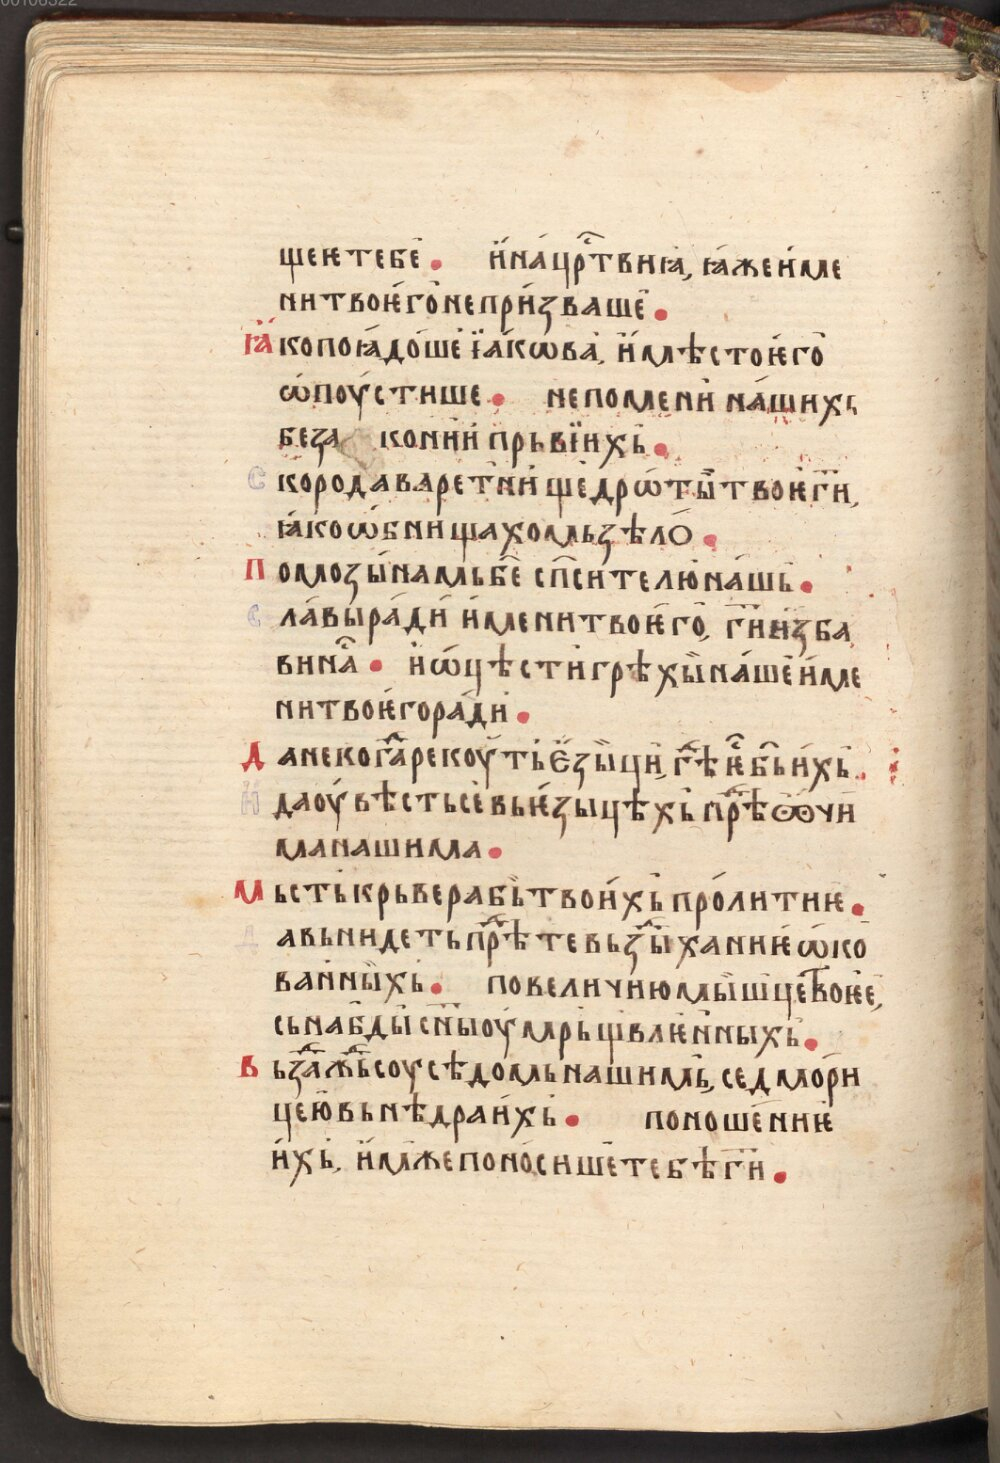 00106322
щеѥтебе҆ • и҆на́цр҃твиꙗ, ꙗ҆жеи҆ме
нитвоѥ҆го҆непри́зваше҆ •
Ꙗ҆копоꙗ҆до́ше҆ і҆а҆кѡва̀, и҆мѣстоѥ҆го̀
ѡ҆поу҆стише • непомени̇ на́шихь
беза конии҆ прьвїихь̀ •
С кородаваретни̇ щедрѡ҆ты̀ твоѥ҆ г҃и,
ꙗ҆коѡ҆бнищахомьзѣло̀ •
П омозы҆намьб҃е сп҃сителюна́шь̀ •
С ла́выра́ди҆ и҆менитвоѥ҆го̀, г҃ии҆зба
вина҇ • и҆ѡ҆цѣстѝгрѣхы̀на́шеи҆ме
нитвоѥ҆гора́дѝ •
Д анекогⷣарекоу҆ть̀ е҆зы̀цѝ, гⷣѣѥ҆҇ б҃ьи҆хь̀ •
Н даоу҆вѣстьсевьѥ҆зыцѣхь̀ прⷣѣꙍ҆чи
манашима •
М ьсть̀крьверабь̀твои҆хь̀ про́литиѥ •
Д авьнидетьпрⷣѣ тевьзⷣы ханиѥ҆ ѡ҆ко
ван̾ны̀хь̀ • повеличи҆юмы̀шцет҇воѥѐ,
сьнабды̀ сн҃ыоу҆мрьщвлѥн̾ныхь̀ •
В ьзⷣа́жⷣьсоусѣдомьнашимь̀, седмо́ри
цею҆вьнѣдраи҆хь̀ • поношениѥ̀
и҆хь̀, и҆мꙗ́жепоно́сише҆тебѣг҃и •